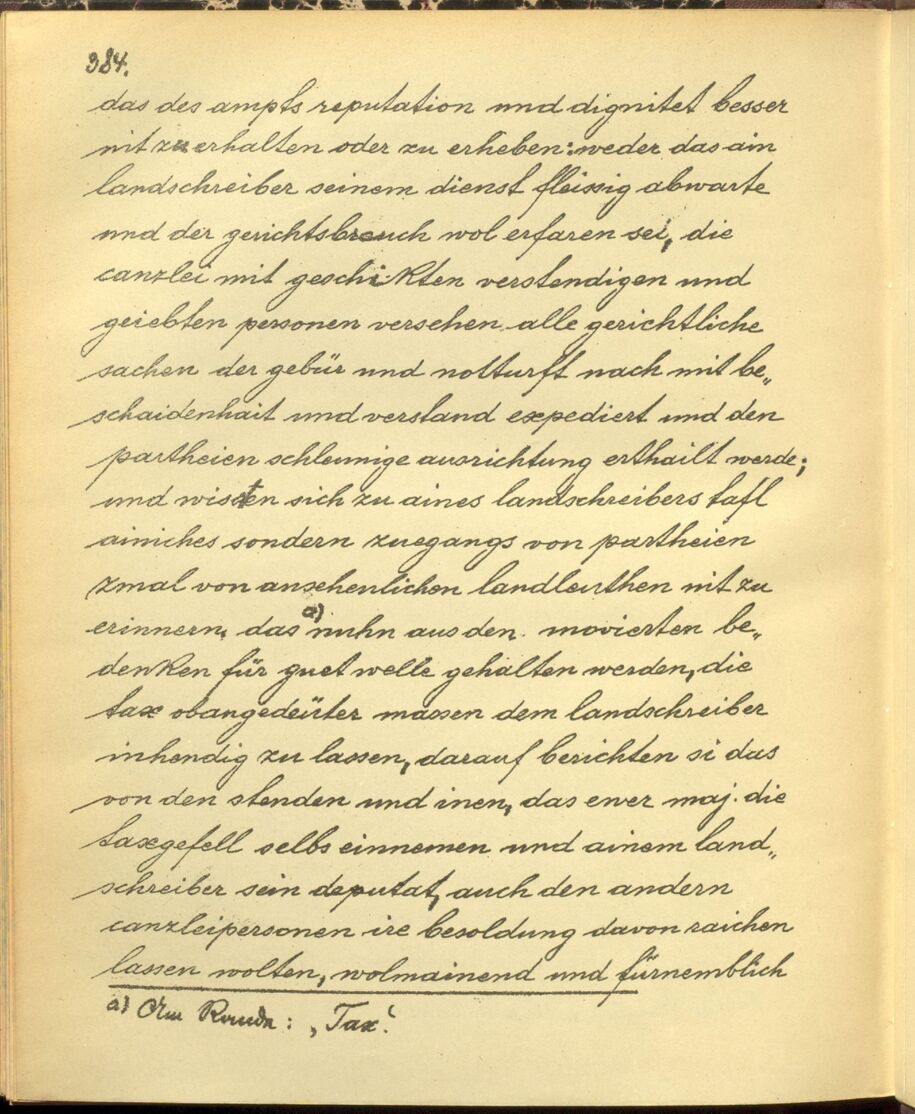 384.
das des ampts reputation und dignitet besser
nit zu erhalten oder zu erheben: weder das ain
landschreiber seinem dienst fleissig abwarte
und der gerichtsbreuch wol erfaren sei, die
canzlei mit geschikten verstendigen und
geiebten personen versehen alle gerichtliche
sachen der gebür und notturft nach mit be„
schaidenhait und verstand expediert und den
partheien schleunige ausrichtung erthailt werde;
und wisten sich zu aines landschreibers tafl
ainiches sondern zuegangs von partheien
zmal von ansehenlichen landleuthen nit zu
erinnern, das a) nuhn aus den movierten be„
denken für guet welle gehalten werden, die
tax obangedeüter massen dem landschreiber
inhendig zu lassen, darauf berichten si das
von den stenden und inen, das ewer maj. die
taxgefell selbs einnemen und ainem land„
schreiber sein deputat, auch den andern
canzleipersonen ire besoldung davon raichen
lassen wolten, wolmainend und fürnemblich
a) Am Rande: „Tax“.